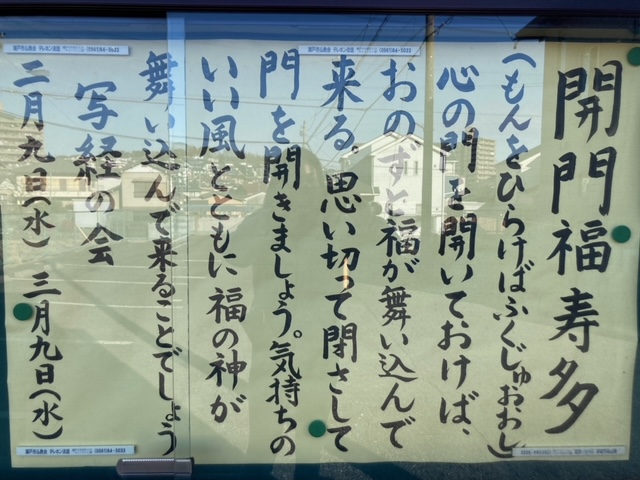 開門福寿多
(へもんをひらけばふくじゅおおし)
心の門を開いておけば、
おのずと福が舞い込んで
来る。思い切って閉ざして
門を開きましょう。気持ちの
いい風とともに福の神が
舞い込んで来ることでしょう
写経の会
二月九日(水) 三月九日(水)